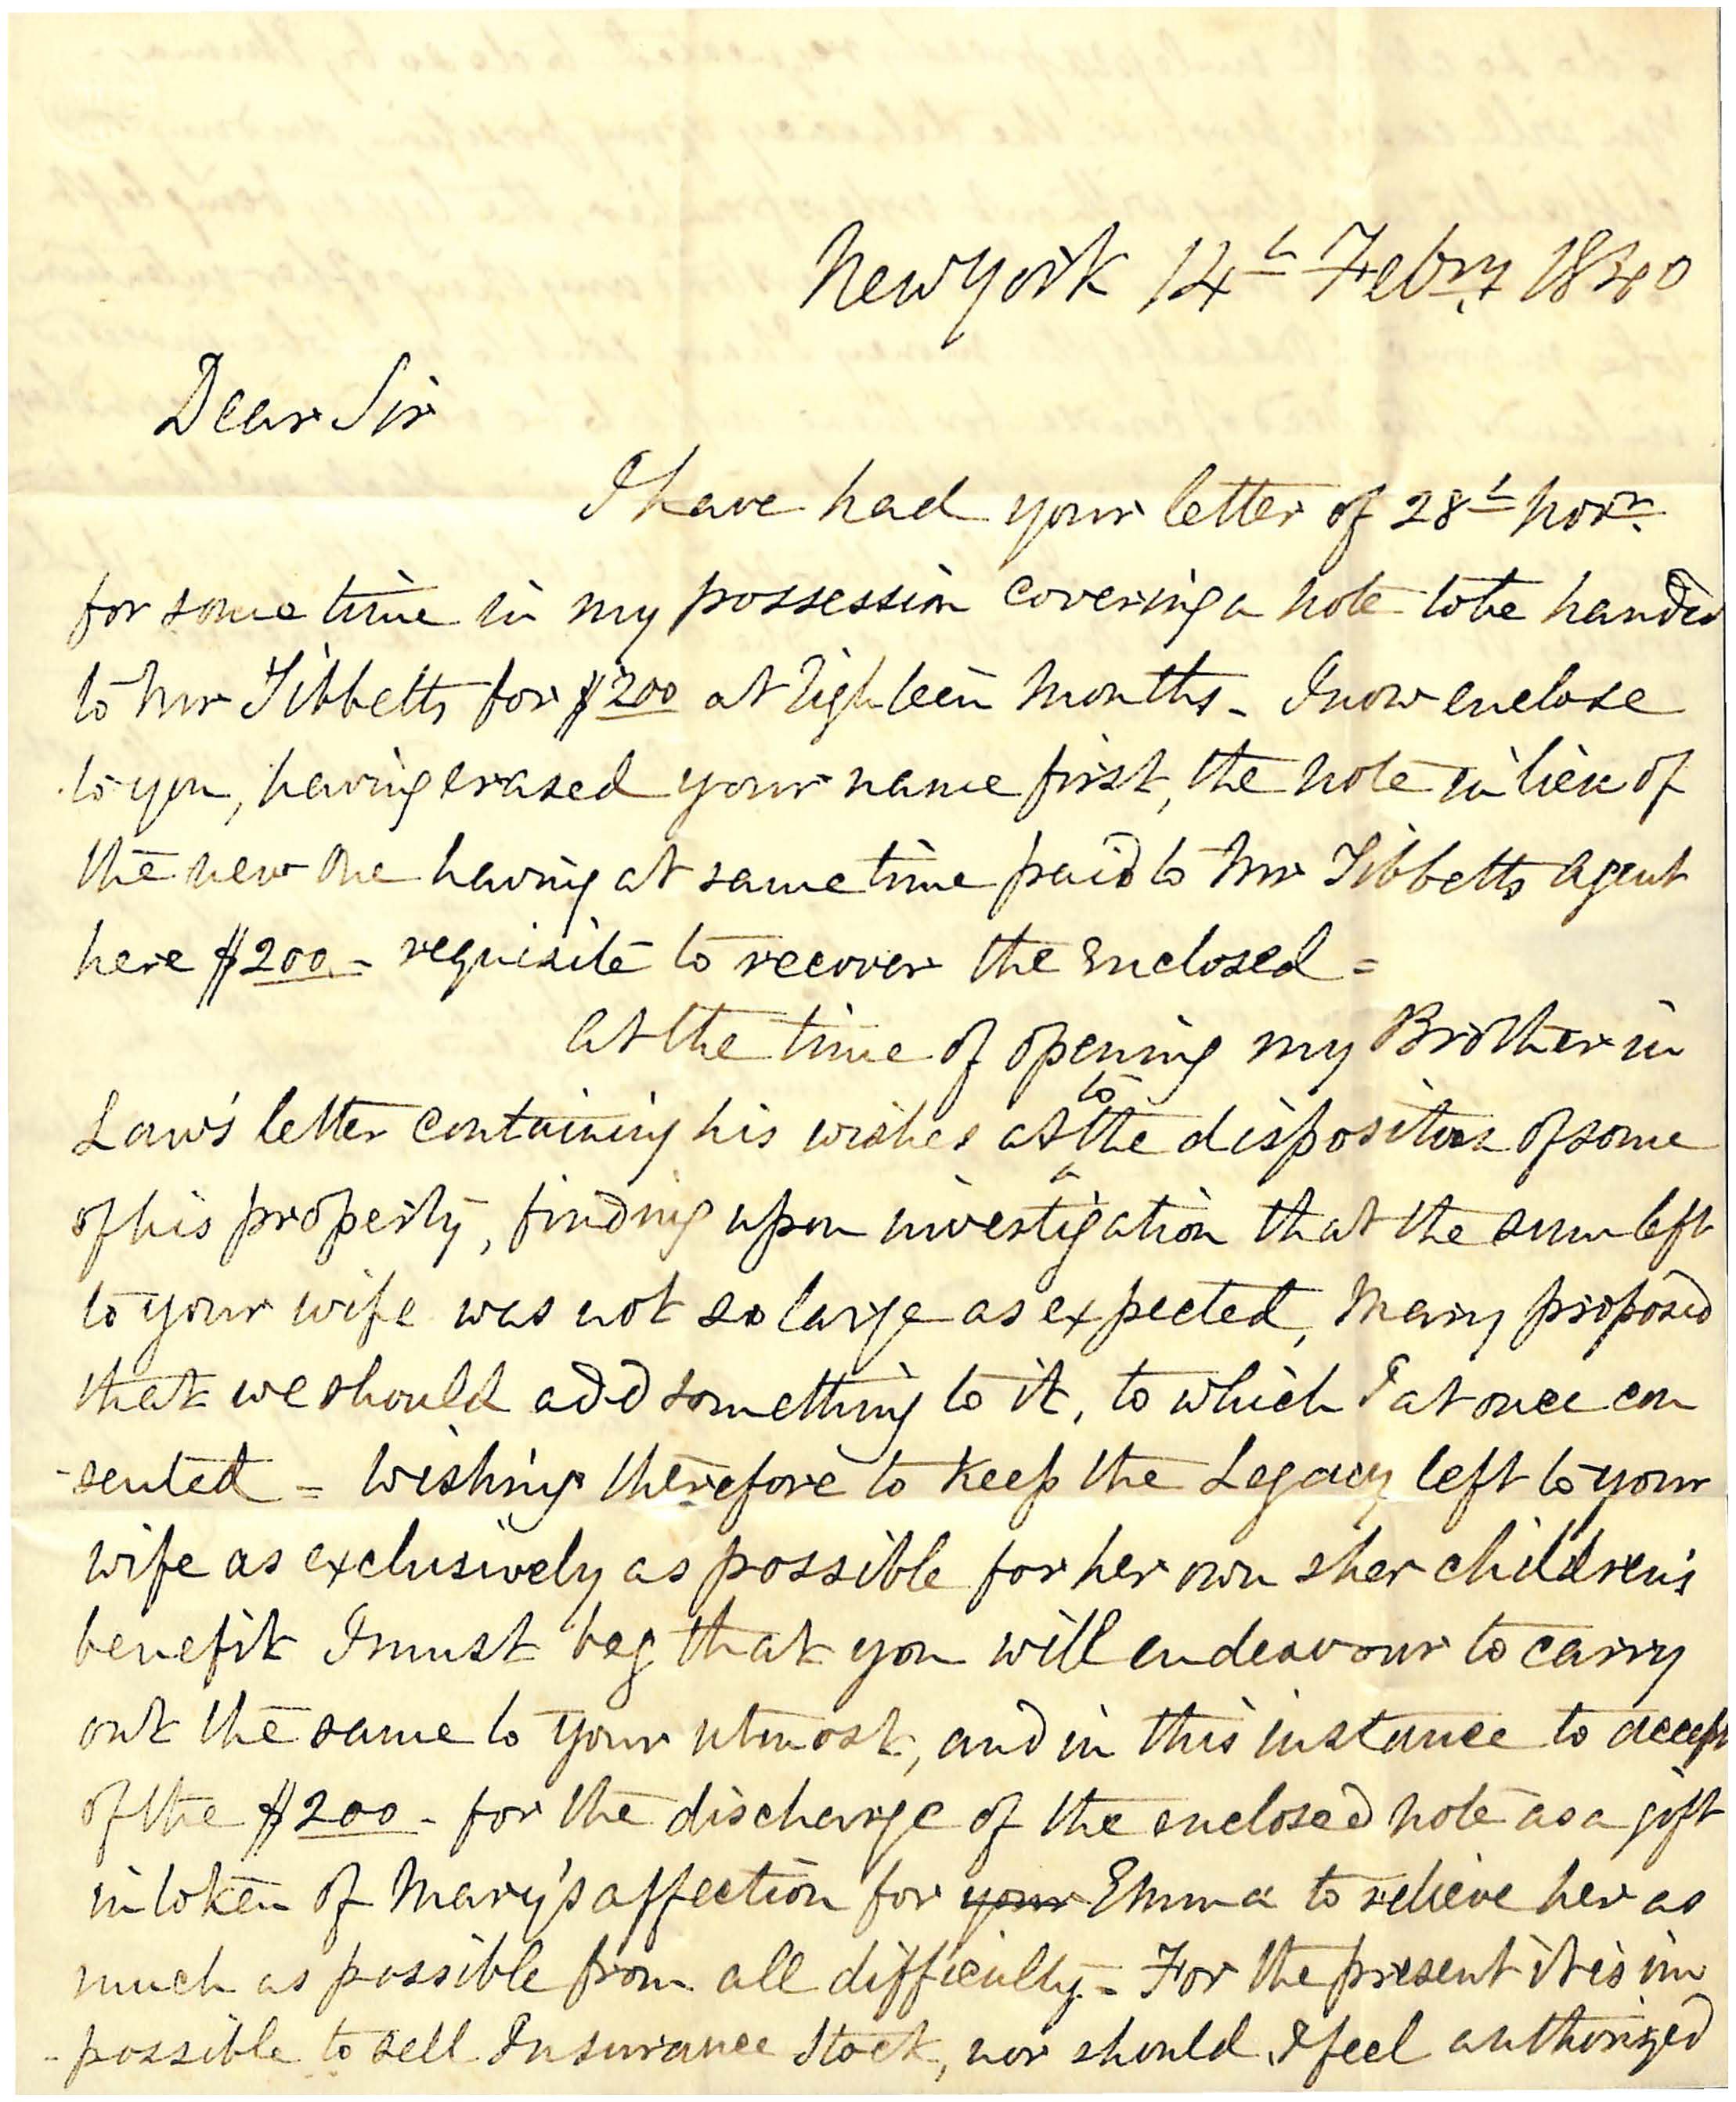 New York 14th Febry 1840
Dear Sir
I have had your letter of 28th Novr.
for some time in my possession covering a note to be handed
to Mr Tibbetts for $200 at Eighteen Months - I now enclose
to you, having erased your name first, the note in lieu of
the new One having at same time paid to Mr Tibbetts Agent
here $200 - requisite to recover the Enclosed =
At the time of opening my Brother in
Law's letter containing his wishes as to the disposition of some
of his property, finding upon investigation that the sum left
to your wife was not so large as expected, Mary proposed
that we should add something to it, to which I at once con
-sented = Wishing therefore to keep the Legacy left to your
wife as exclusively as possible for her own & her children's
benefit I must beg that you will endeavour to carry
out the same to your utmost, and in this instance to accept
of the $200 - for the discharge of the enclosed note as a gift
in token of Mary's affection for your Emma to relieve her as
much as possible from all difficulty = For the present it is im
-possible to sell Insurance Stock, nor should I feel authorized